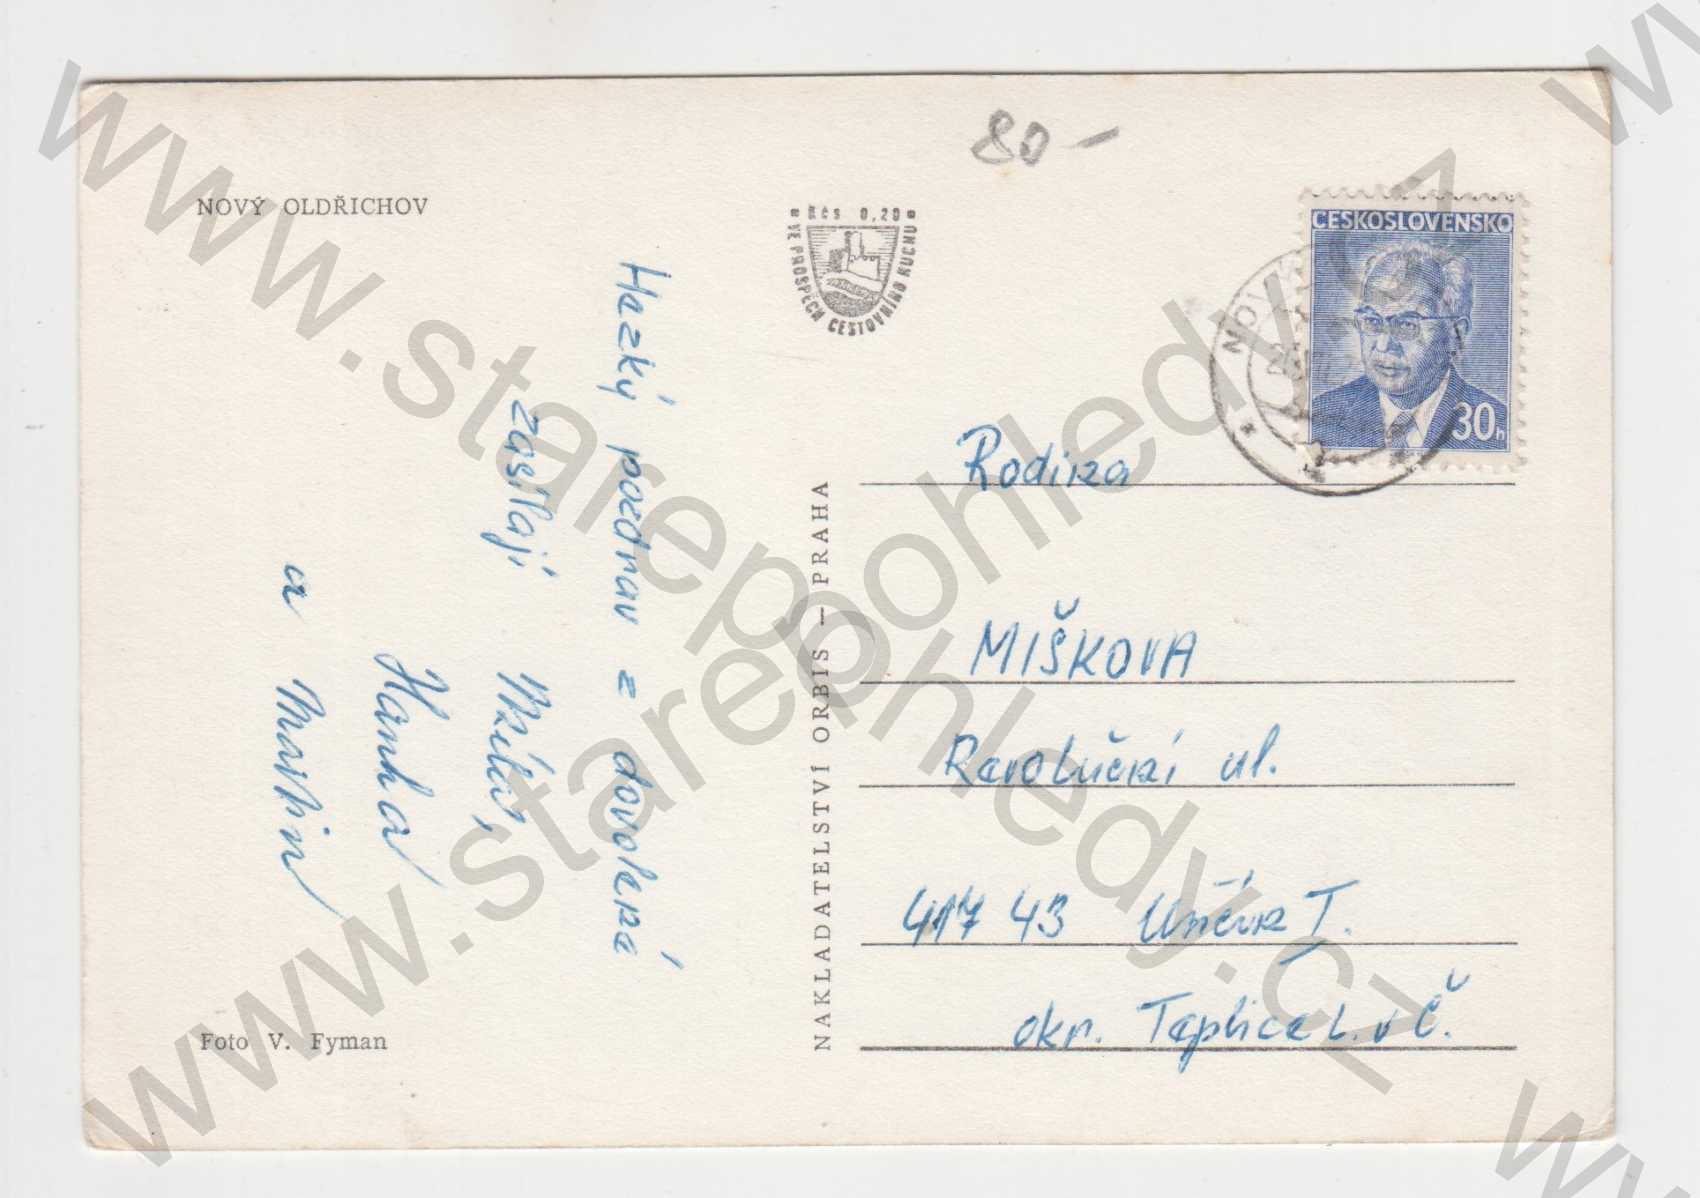 NOVÝ OLDŘICHOV
80-
Kčs 0,20
VE PROSPĚCH CESTOVNÍHO RUCHU
ČESKOSLOVENSKO
30h
NOV
Hezký pozdrav z dovolené
zasílají Míla,
Hanka
a Martin
Foto V. Fyman
NAKLADATELSTVÍ ORBIS — PRAHA
Rodina
MIŠKOVA
Revoluční ul.
417 43 Unčín T.
okr. Teplice L. v Č.
www.starepohledy.cz
www.starepohledy.cz